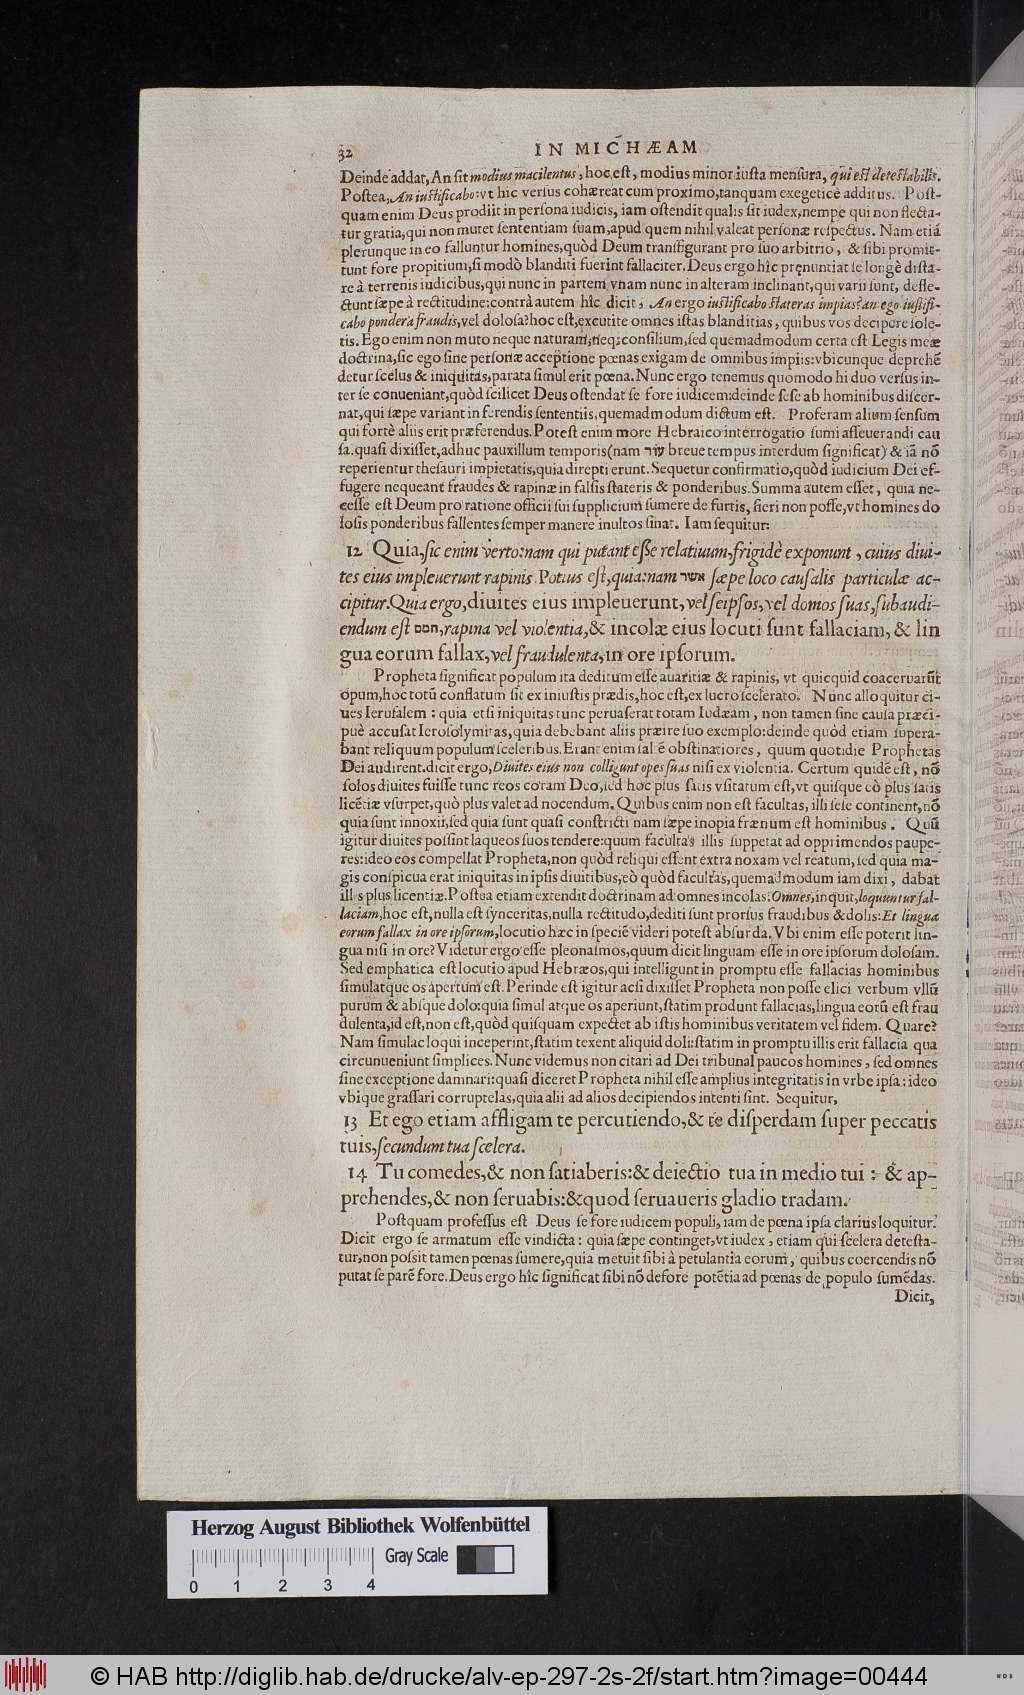 32
IN MICHÆAM
Deinde addat, An sit modius macilentus, hoc est, modius minor iusta mensura, qui est detestabilis.
Postea, An iustificabo: vt hic versus cohæreat cum proximo, tanquam exegeticè additus. Post-
quam enim Deus prodiit in persona iudicis, iam ostendit qualis sit iudex, nempe qui non flecta-
tur gratia, qui non mutet sententiam suam, apud quem nihil valeat personæ respectus. Nam etiã
plerunque in eo falluntur homines, quòd Deum transfigurant pro suo arbitrio, & sibi promit-
tunt fore propitium, si modò blanditi fuerint fallaciter. Deus ergo hîc prenuntiat se longè dista-
re à terrenis iudicibus, qui nunc in partem vnam nunc in alteram inclinant, qui varii sunt, defle-
ctunt sæpe à rectitudine: contrà autem hîc dicit, An ergo iustificabo stateras impias? an ego iustifi-
cabo pondera fraudis, vel dolosa? hoc est, excutite omnes istas blanditias, quibus vos decipere sole-
tis. Ego enim non muto neque naturam, neq; consilium, sed quemadmodum certa est Legis meæ
doctrina, sic ego sine personæ acceptione pœnas exigam de omnibus impiis: vbicunque deprehẽ
detur scelus & iniquitas, parata simul erit pœna. Nunc ergo tenemus quomodo hi duo versus in-
ter se conueniant, quòd scilicet Deus ostendat se fore iudicem: deinde sese ab hominibus discer-
nat, qui sæpe variant in ferendis sententiis, quemadmodum dictum est. Proferam alium sensum
qui fortè aliis erit præferendus. Potest enim more Hebraico interrogatio sumi asseuerandi cau
sa. quasi dixisset, adhuc pauxillum temporis (nam עוד breue tempus interdum significat) & iã nõ
reperientur thesauri impietatis, quia direpti erunt. Sequetur confirmatio, quòd iudicium Dei ef-
fugere nequeant fraudes & rapinæ in falsis stateris & ponderibus. Summa autem esset, quia ne-
cesse est Deum pro ratione officii sui supplicium sumere de furtis, fieri non posse, vt homines do
losis ponderibus fallentes semper manere inultos sinat. Iam sequitur:
12 Quia, sic enim verto: nam qui putant esse relatiuum, frigidè exponunt, cuius diui-
tes eius impleuerunt rapinis. Potius est, quia: nam אשר sæpe loco causalis particulæ ac-
cipitur. Quia ergo, diuites eius impleuerunt, vel seipsos, vel domos suas, subaudi-
endum est חמס, rapina vel violentia, & incolæ eius locuti sunt fallaciam, & lin
gua eorum fallax, vel fraudulenta, in ore ipsorum.
Propheta significat populum ita deditum esse auaritiæ & rapinis, vt quicquid coaceruarũt
opum, hoc totũ conflatum sit ex iniustis prædis, hoc est, ex lucro scelerato. Nunc alloquitur ci-
ues Ierusalem: quia etsi iniquitas tunc peruaserat totam Iudæam, non tamen sine causa præci-
puè accusat Ierosolymitas, quia debebant aliis præire suo exemplo: deinde quòd etiam supera-
bant reliquum populum sceleribus. Erant enim salẽ obstinatiores, quum quotidie Prophetas
Dei audirent. dicit ergo, Diuites eius non colligunt opes suas nisi ex violentia. Certum quidẽ est, nõ
solos diuites fuisse tunc reos coram Deo, sed hoc plus satis vsitatum est, vt quisque eò plus satis
licẽtiæ vsurpet, quò plus valet ad nocendum. Quibus enim non est facultas, illi sese continent, nõ
quia sunt innoxii, sed quia sunt quasi constricti nam sæpe inopia frænum est hominibus. Quũ
igitur diuites possint laqueos suos tendere: quum facultas illis suppetat ad opprimendos paupe-
res: ideo eos compellat Propheta, non quòd reliqui essent extra noxam vel reatum, sed quia ma-
gis conspicua erat iniquitas in ipsis diuitibus, eò quòd facultas, quemadmodum iam dixi, dabat
illis plus licentiæ. Postea etiam extendit doctrinam ad omnes incolas: Omnes, inquit, loquuntur fal-
laciam, hoc est, nulla est synceritas, nulla rectitudo, dediti sunt prorsus fraudibus & dolis: Et lingua
eorum fallax in ore ipsorum, locutio hæc in speciẽ videri potest absurda. Vbi enim esse poterit lin-
gua nisi in ore? Videtur ergo esse pleonasmos, quum dicit linguam esse in ore ipsorum dolosam.
Sed emphatica est locutio apud Hebræos, qui intelligunt in promptu esse fallacias hominibus
simulatque os apertum est. Perinde est igitur acsi dixisset Propheta non posse elici verbum vllũ
purum & absque dolo: quia simul atque os aperiunt, statim produnt fallacias, lingua eorũ est frau
dulenta, id est, non est, quòd quisquam expectet ab istis hominibus veritatem vel fidem. Quare?
Nam simulac loqui inceperint, statim texent aliquid doli: statim in promptu illis erit fallacia qua
circunueniunt simplices. Nunc videmus non citari ad Dei tribunal paucos homines, sed omnes
sine exceptione damnari: quasi diceret Propheta nihil esse amplius integritatis in vrbe ipsa: ideo
vbique grassari corruptelas, quia alii ad alios decipiendos intenti sint. Sequitur,
13 Et ego etiam affligam te percutiendo, & te disperdam super peccatis
tuis, secundum tua scelera.
14 Tu comedes, & non satiaberis: & deiectio tua in medio tui: & ap-
prehendes, & non seruabis: & quod seruaueris gladio tradam.
Postquam professus est Deus se fore iudicem populi, iam de pœna ipsa clarius loquitur.
Dicit ergo se armatum esse vindicta: quia sæpe continget, vt iudex, etiam qui scelera detesta-
tur, non possit tamen pœnas sumere, quia metuit sibi à petulantia eorum, quibus coercendis nõ
putat se parẽ fore. Deus ergo hîc significat sibi nõ defore potẽtia ad pœnas de populo sumẽdas.
Dicit,
Herzog August Bibliothek Wolfenbüttel
Gray Scale
0 1 2 3 4
© HAB http://diglib.hab.de/drucke/alv-ep-297-2s-2f/start.htm?image=00444